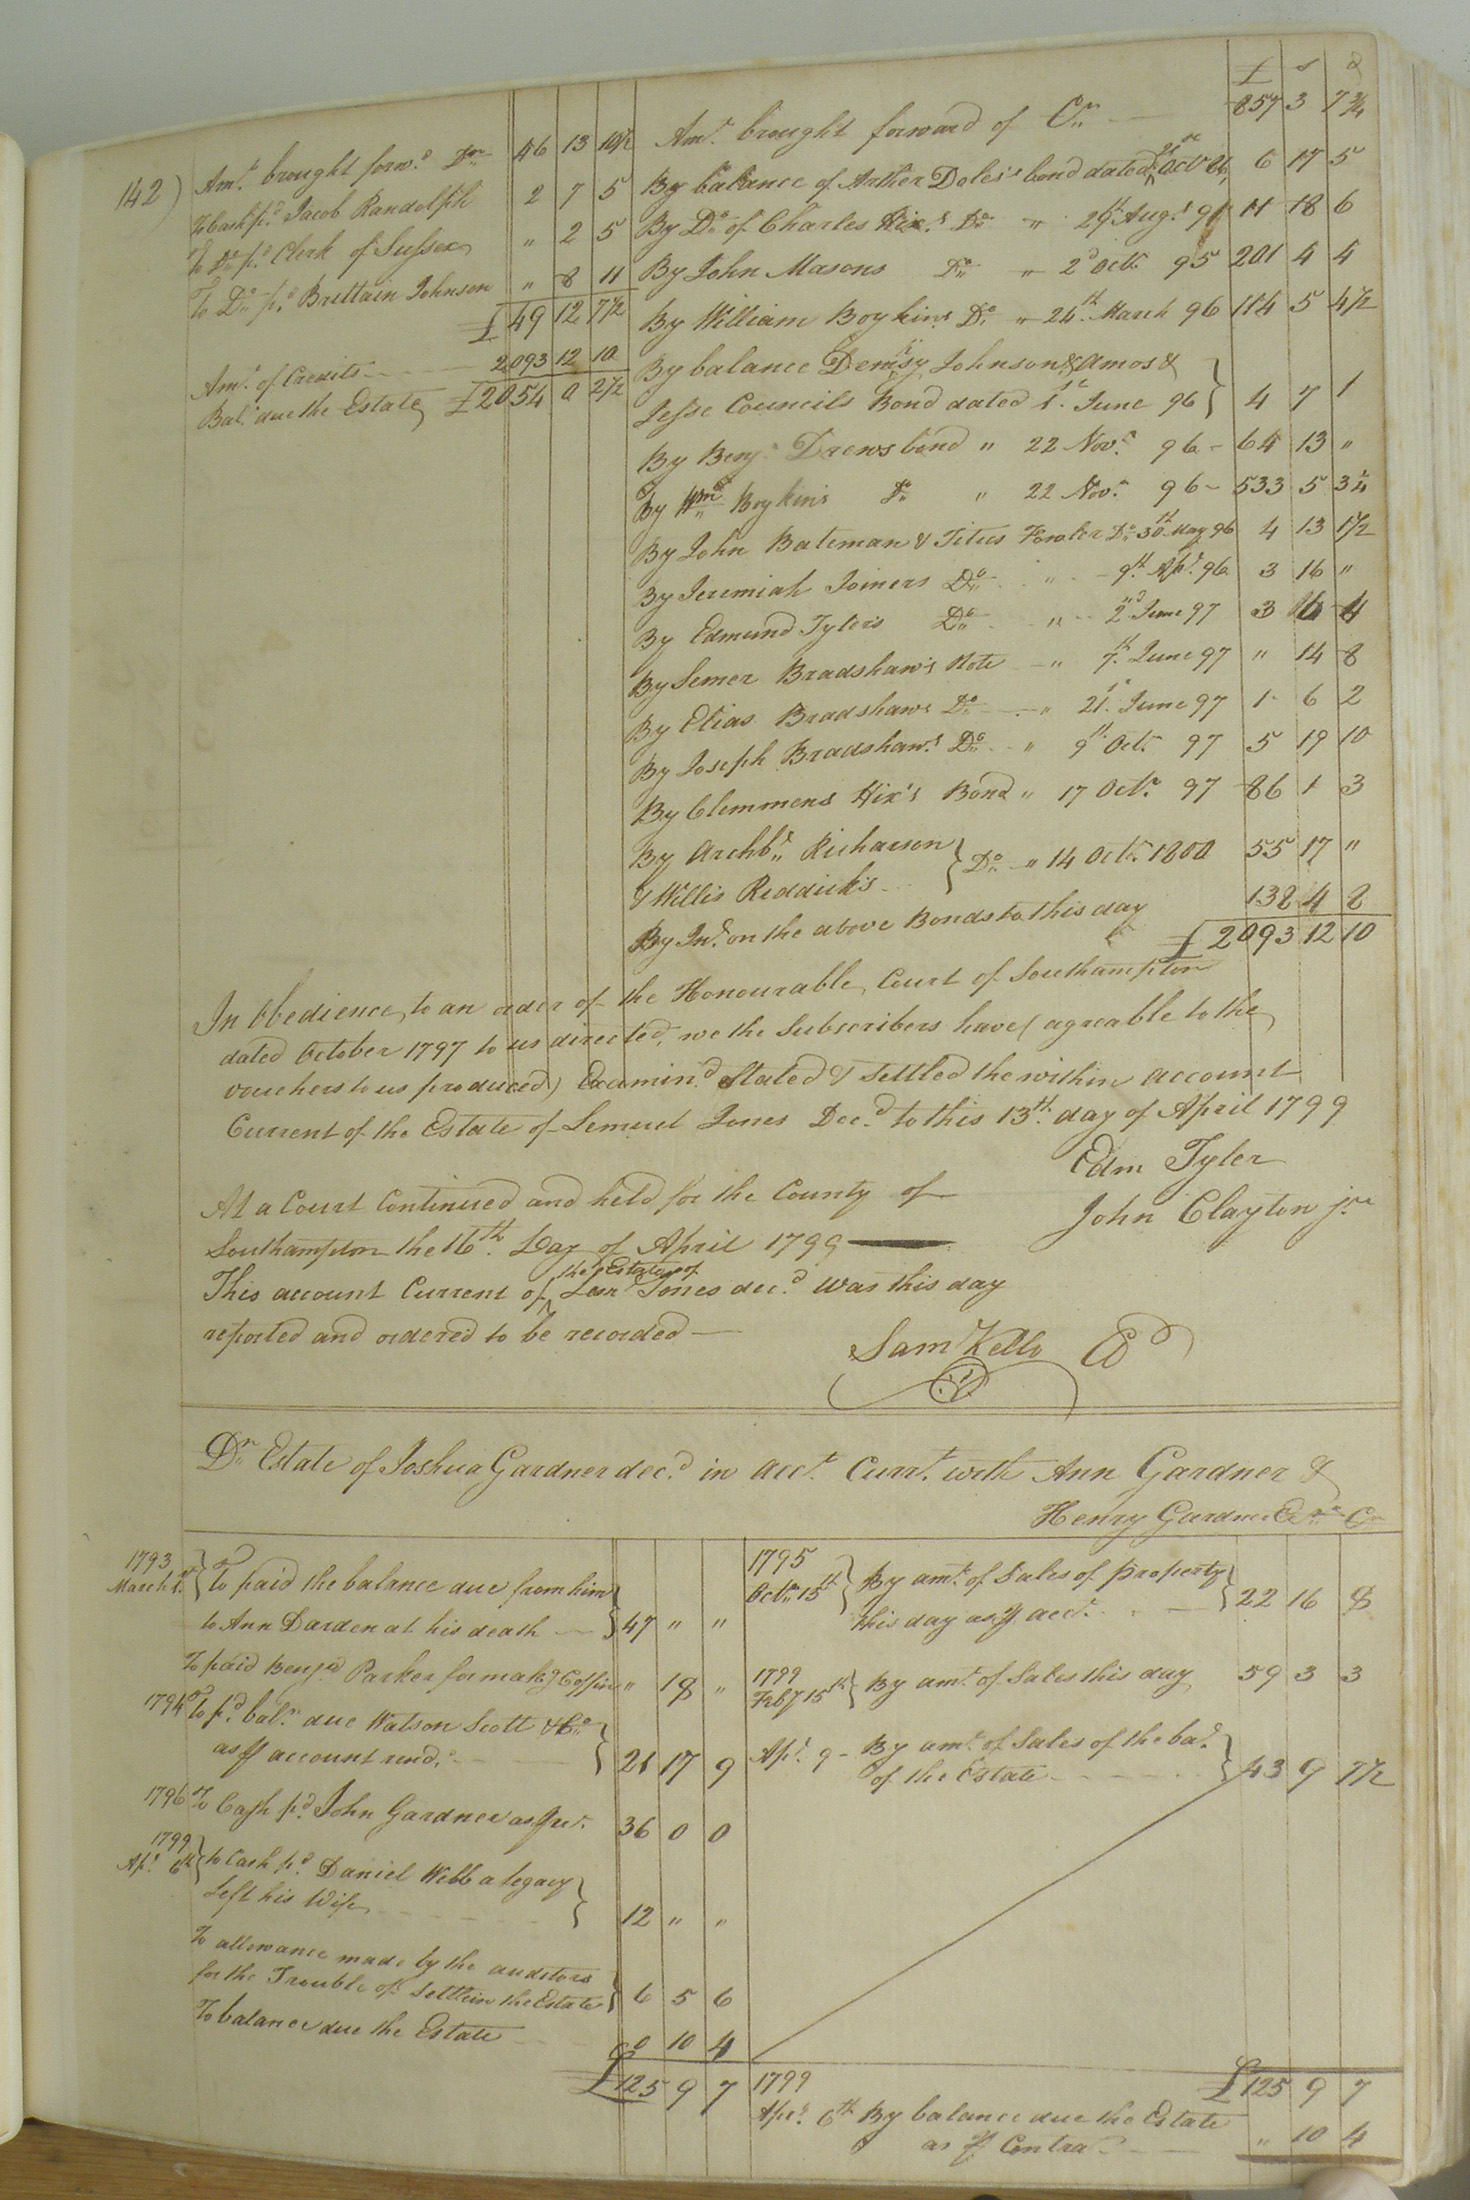 142)
Amt. brought forwd. Dr. 46 13 10 1/2
To Cash pd. Jacob Randolph 2 7 5
To Do. pd. Clerk of Sussex " 2 5
To Do. pd. Brittain Johnson " 8 11
£ 49 12 7 1/2
Amt. of Credits 2093 12 10
Bal. due the Estate £ 2054 0 2 1/2
£ s d
Amt. brought forward of Cr. 857 3 7 3/4
By balance of Arther Doles's bond dated Oct 6 17 5
By Do. of Charles Hix's Do. " 29th. Augt. 91 11 18 6
By John Masons Do. " 2d Octr. 95 201 4 4
By William Boykins Do. " 24th. March 96 114 5 4 1/2
By balance Demsy Johnson & Amos &
Jesse Councils Bond dated 1st. June 96 } 4 7 1
By Benj. Drews bond " 22 Novr. 96 - 64 13 "
By Wm. Boykins Do. " 22 Novr. 96 - 533 5 3 1/4
By John Bateman & Titus Fowler Do. 30th May 96 4 13 1 1/2
By Jeremiah Joiners Do. " 9th. Apl. 96 3 16 "
By Edmund Tylers Do. " 2nd June 97 3 4
By Semer Bradshaw's Note " 7th. June 97 " 14 8
By Elias Bradshaws Do. " 21st. June 97 1 6 2
By Joseph Bradshaw's Do. " 9th Octr. 97 5 19 10
By Clemmens Hix's Bond " 17 Octr. 97 86 1 3
By Archbd. Richarson
& Willis Reddick's } Do. " 14 Octr. 1800 55 17 "
By Int. on the above Bonds to this day 138 4 8
£ 2093 12 10
In Obedience, to an order of the Honourable, Court of Southampton
dated October 1797 to us directed, we the Subscribers have (agreable to the
vouchers to us produced) Examin'd Stated & Settled the within account
Current of the Estate of Lemuel Jones Decd. to this 13th. day of April 1799
Edm Tyler
John Clayton jr.
At a Court Continued and held for the County of
Southampton the 16th. Day of April 1799
the Estate of
This account Current of ^ Leml Jones decd. was this day
reported and ordered to be recorded —
Saml Kello
Dr. Estate of Joshua Gardner decd. in acct. Currt. with Ann Gardner &
Henry Gardner Exr. Cr
1793
March 1st. } To paid the balance due from him
to Ann Darden at his death } 47 " "
To paid Benja Parker for makg Coffin " 18 "
1794 To pd. bal. due Watson Scott & Co.
as pr account rend. } 21 17 9
1796 To Cash pd. John Gardner as pr rect. 36 0 0
1799
Apl. 6th { to Cash pd. Daniel Webb a legacy
Left his Wife } 12 " "
To allowance made by the auditors
for the Trouble of Settlin the Estate } 6 5 6
To balance due the Estate 0 10 4
£ 125 9 7
1795
Octr. 15th } By amt. of Sales of Property
this day as pr acct. } 22 16 8
1799
Feby 15th } By amt. of Sales this day 59 3 3
Apl. 9 - By amt. of Sales of the bal.
of the Estate } 43 9 7 1/2
£ 125 9 7
1799
Apl. 6th By balance due the Estate
as pr. Contra " 10 4